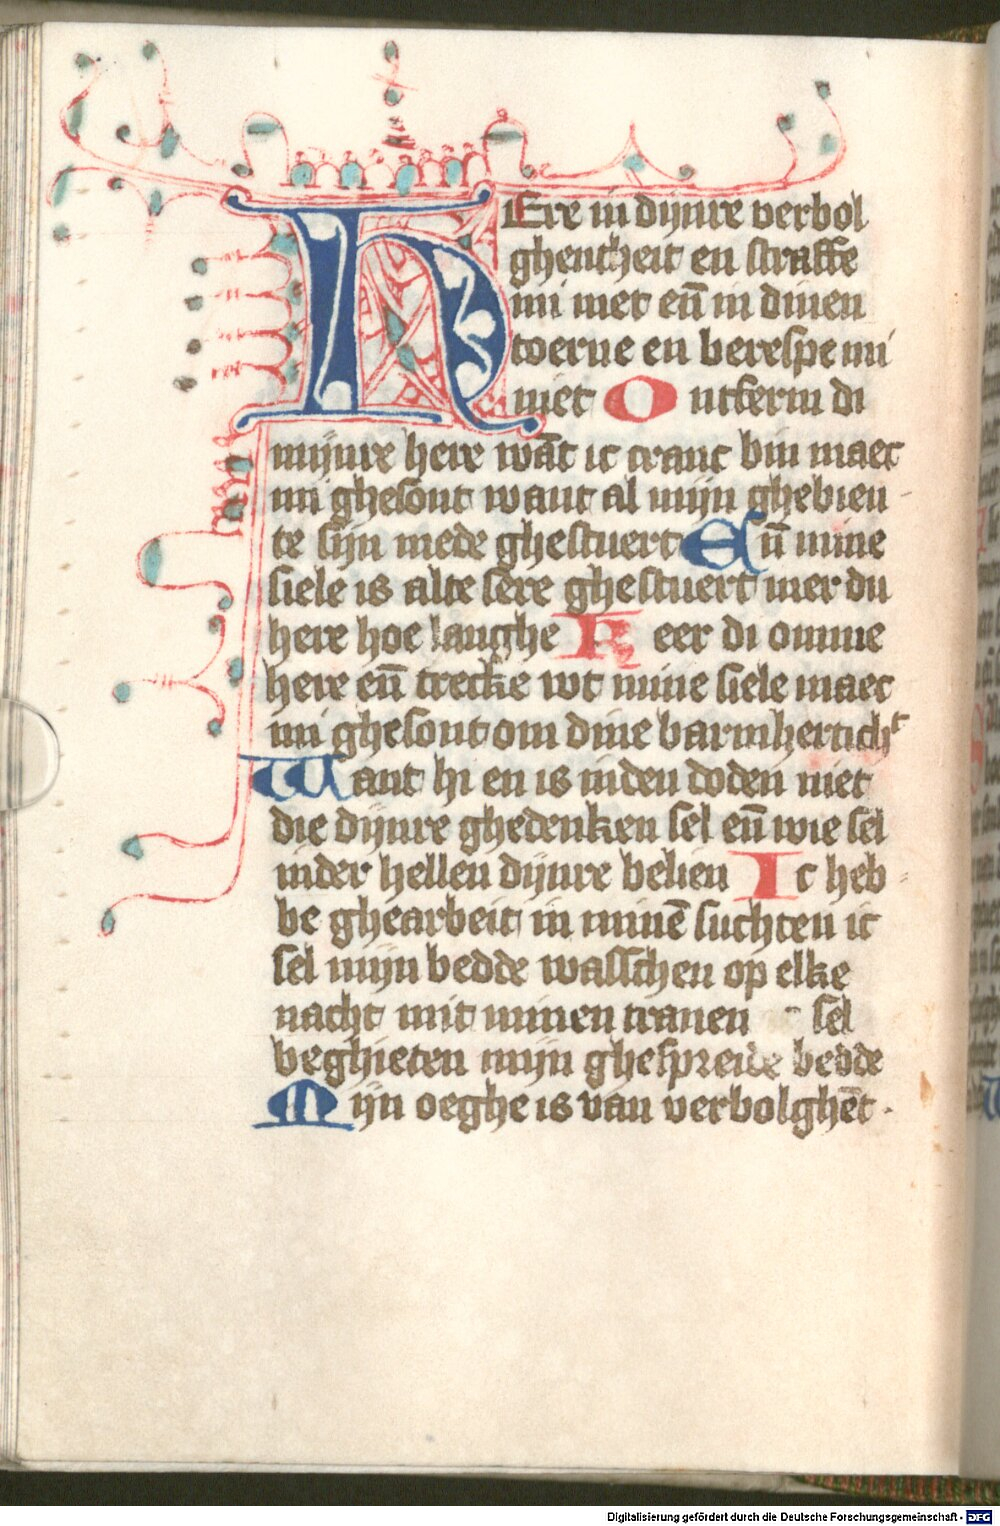 HEre in dijnre verbol
ghentheit en straffe
mi niet eñ in dinen
toerne en berespe mi
niet Ontferm di
mijnre here wāt ic cranc bin maec
mi ghesont want al mijn ghebien-
te sijn mede ghestuert Eñ mine
siele is alte sere ghestuert mer du
here hoe langhe Keer di omme
here eñ trecke wt mine siele maec
mi ghesont om dine barmherticht
Want hi en is inden doden niet
die dijnre ghedenken sel eñ wie sel
inder hellen dijnre belien Ic heb-
be ghearbeit in minē suchten ic
sel mijn bedde wasschen op elke
nacht mit minen tranen sel
beghieten mijn ghespreide bedde
Mijn oeghe is van verbolghēt-
Digitalisierung gefördert durch die Deutsche Forschungsgemeinschaft - DFG